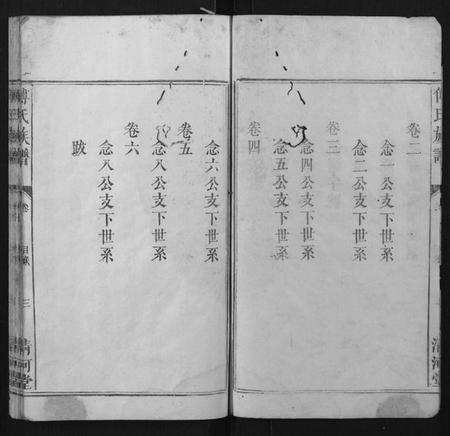 傅氏族譜
清河堂
卷二
念一公支下世系
念二公支下世系
卷三
念四公支下世系
念五公支下世系
卷四
念六公支下世系
卷五
念八公支下世系
卷六
念八公支下世系
跋
傅氏族譜
卷
目錄
三
清河堂